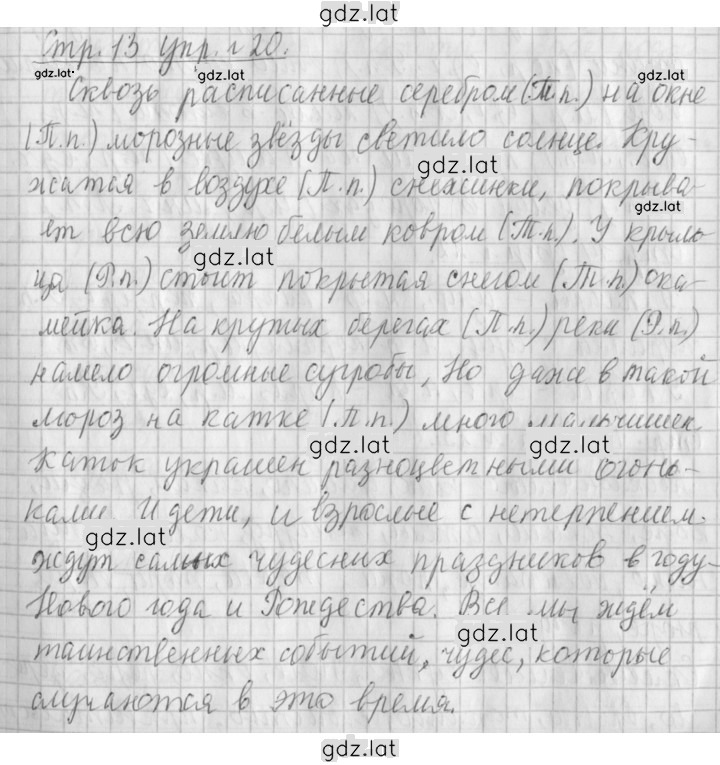 gdz.lat
Стр. 13 упр. 20.
gdz.lat gdz.lat
Сквозь расписанные серебром (Т.п.) на окне
(П.п.) морозные звёзды светило солнце. Кру-
gdz.lat
жатся в воздухе (П.п.) снежинки, покрыва-
gdz.lat
ет всю землю белым ковром (Т.п.). У крыль
gdz.lat
ца (Р.п.) стоит покрытая снегом (Т.п) ска
мейка. На крутых берегах (П.п.) реки (Р.п.)
намело огромные сугробы, Но даже в такой
мороз на катке (П.п.) много мальчишек.
gdz.lat gdz.lat
Каток украшен разноцветными огонь-
ками. И дети, и взрослые с нетерпением
gdz.lat
ждут самых чудесных праздников в году-
Нового года и Рождества. Все мы ждём
gdz.lat
таинственных событий, чудес, которые
случаются в это время.
gdz.lat